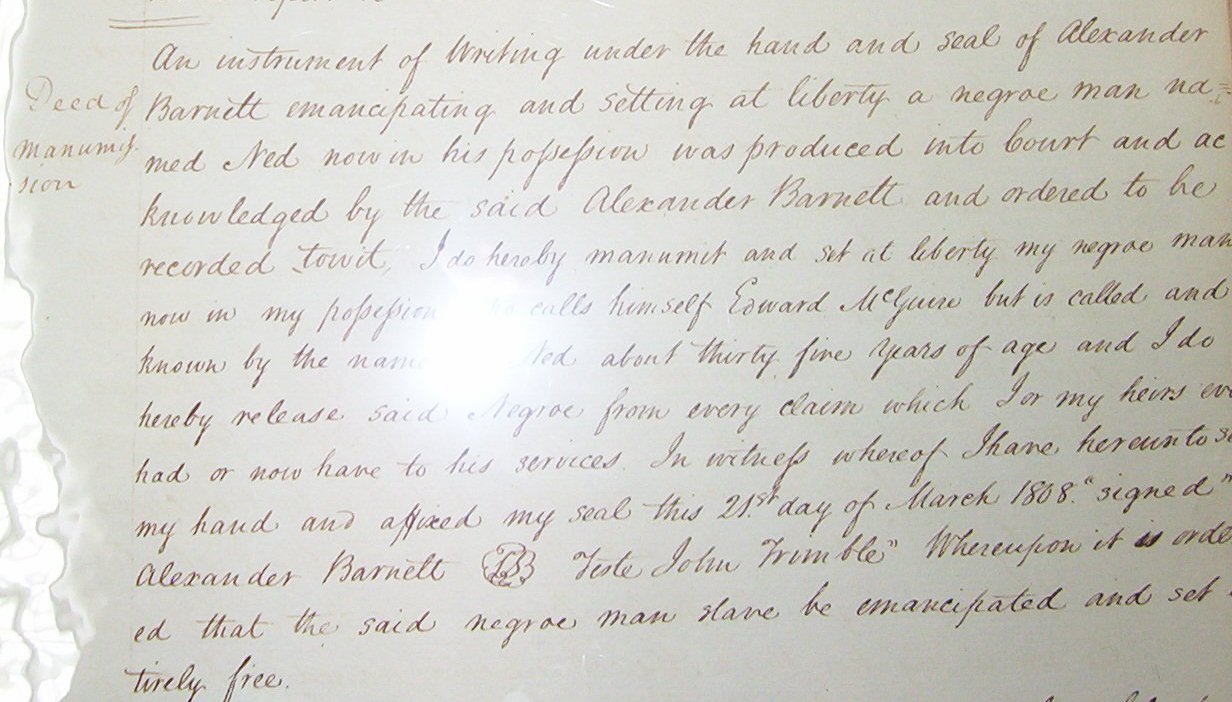 An instrument of Writing under the hand and seal of Alexander
Deed of
Barnett emancipating and setting at liberty a negroe man na
manumis
med Ned now in his possession was produced into Court and ac
sion
knowledged by the said Alexander Barnett and ordered to be
recorded towit, I do hereby manumit and set at liberty my negroe man
now in my possession calls himself Edward McGuire but is called and
known by the name Ned about thirty five years of age and I do
hereby release said Negroe from every claim which I or my heirs ev
had or now have to his services. In witness whereof I have hereunto s
my hand and affixed my seal this 21.st day of March 1808. "signed"
Alexander Barnett Teste John Trimble" Whereupon it is orde
ed that the said negroe man slave be emancipated and set
tirely free.